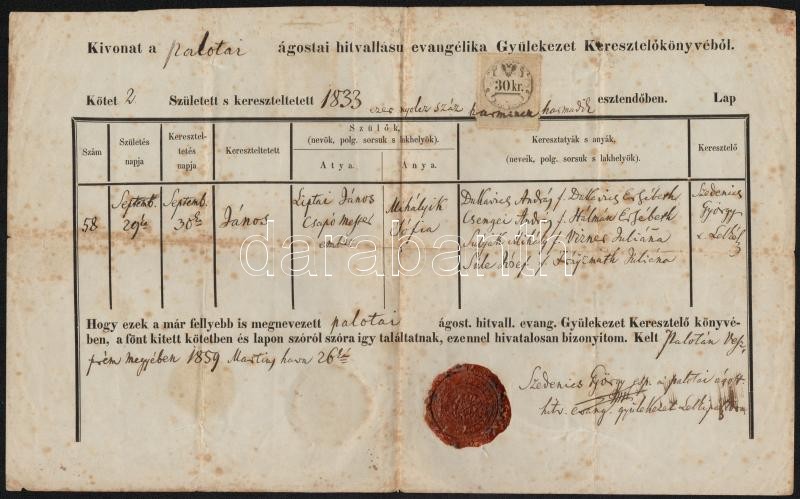 Kivonat a palotai ágostai hitvallásu evangélika Gyülekezet Keresztelőkönyvéből.
30 kr.
Kötet 2 Született s kereszteltetett 1833 ezer nyolcz száz harmincz harmadik esztendőben. Lap
Szám
Születés napja
Keresztel-tetés napja
Kereszteltetett
Szülők,
(nevök, polg. sorsuk s lakhelyök).
Atya.
Anya.
Keresztatyák s anyák,
(neveik, polg. sorsuk s lakhelyök).
Keresztelő
58
Septemb. 29én
Septemb. 30án
János
Liptai János
Csapó Mester
ember
Mihályik
Sófia
Dukavics András f. Dukavics Ersébeth
Csengei András f. Halman Ersébeth
Mihály f. Juliána
Sule Jósef f. Juliána
Szedenics
György
Lelkész
darabanth
Hogy ezek a már fellyebb is megnevezett palotai ágost. hitvall. evang. Gyülekezet Keresztelő könyvé-
ben, a fönt kitett kötetben és lapon szóról szóra igy találtatnak, ezennel hivatalosan bizonyitom. Kelt Palotán Vesz-
prém megyében 1859 Martius havn 26án
Szedenics György esp. a palotai ágost.
hitv. evang. gyülekezet Lelkipásztora